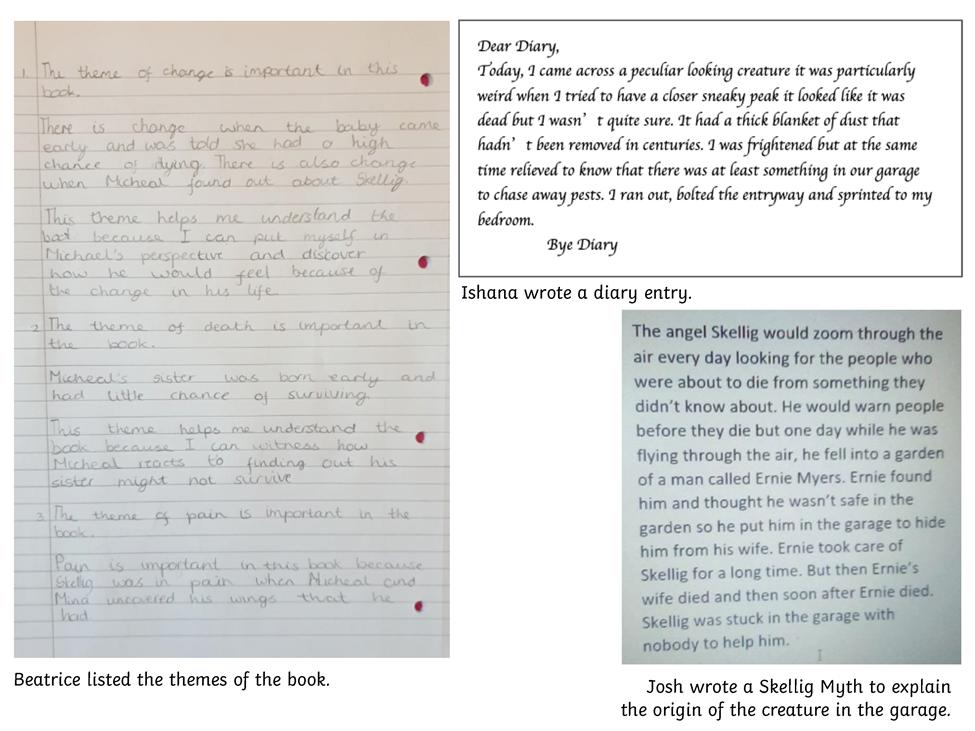 1. The theme of change is important in this
book.
There is change when the baby came
early and was told she had a high
chance of dying. There is also change
when Micheal found out about Skellig.
This theme helps me understand the
because I can put myself in
Michael's perspective and discover
how he would feel because of
the change in his life
2 The theme of death is important in
the book.
Micheal's sister was born early and
had little chance of surviving.
This theme helps me understand the
book because I can witness how
Micheal reacts to finding out his
sister might not survive
3. The theme of pain is important in the
book.
Pain is important in this book because
Skellig was in pain when Micheal and
Mina uncovered his wings that he
had
Beatrice listed the themes of the book.
Dear Diary,
Today, I came across a peculiar looking creature it was particularly
weird when I tried to have a closer sneaky peak it looked like it was
dead but I wasn’ t quite sure. It had a thick blanket of dust that
hadn’ t been removed in centuries. I was frightened but at the same
time relieved to know that there was at least something in our garage
to chase away pests. I ran out, bolted the entryway and sprinted to my
bedroom.
Bye Diary
Ishana wrote a diary entry.
The angel Skellig would zoom through the
air every day looking for the people who
were about to die from something they
didn’t know about. He would warn people
before they die but one day while he was
flying through the air, he fell into a garden
of a man called Ernie Myers. Ernie found
him and thought he wasn’t safe in the
garden so he put him in the garage to hide
him from his wife. Ernie took care of
Skellig for a long time. But then Ernie’s
wife died and then soon after Ernie died.
Skellig was stuck in the garage with
nobody to help him.
Josh wrote a Skellig Myth to explain
the origin of the creature in the garage.